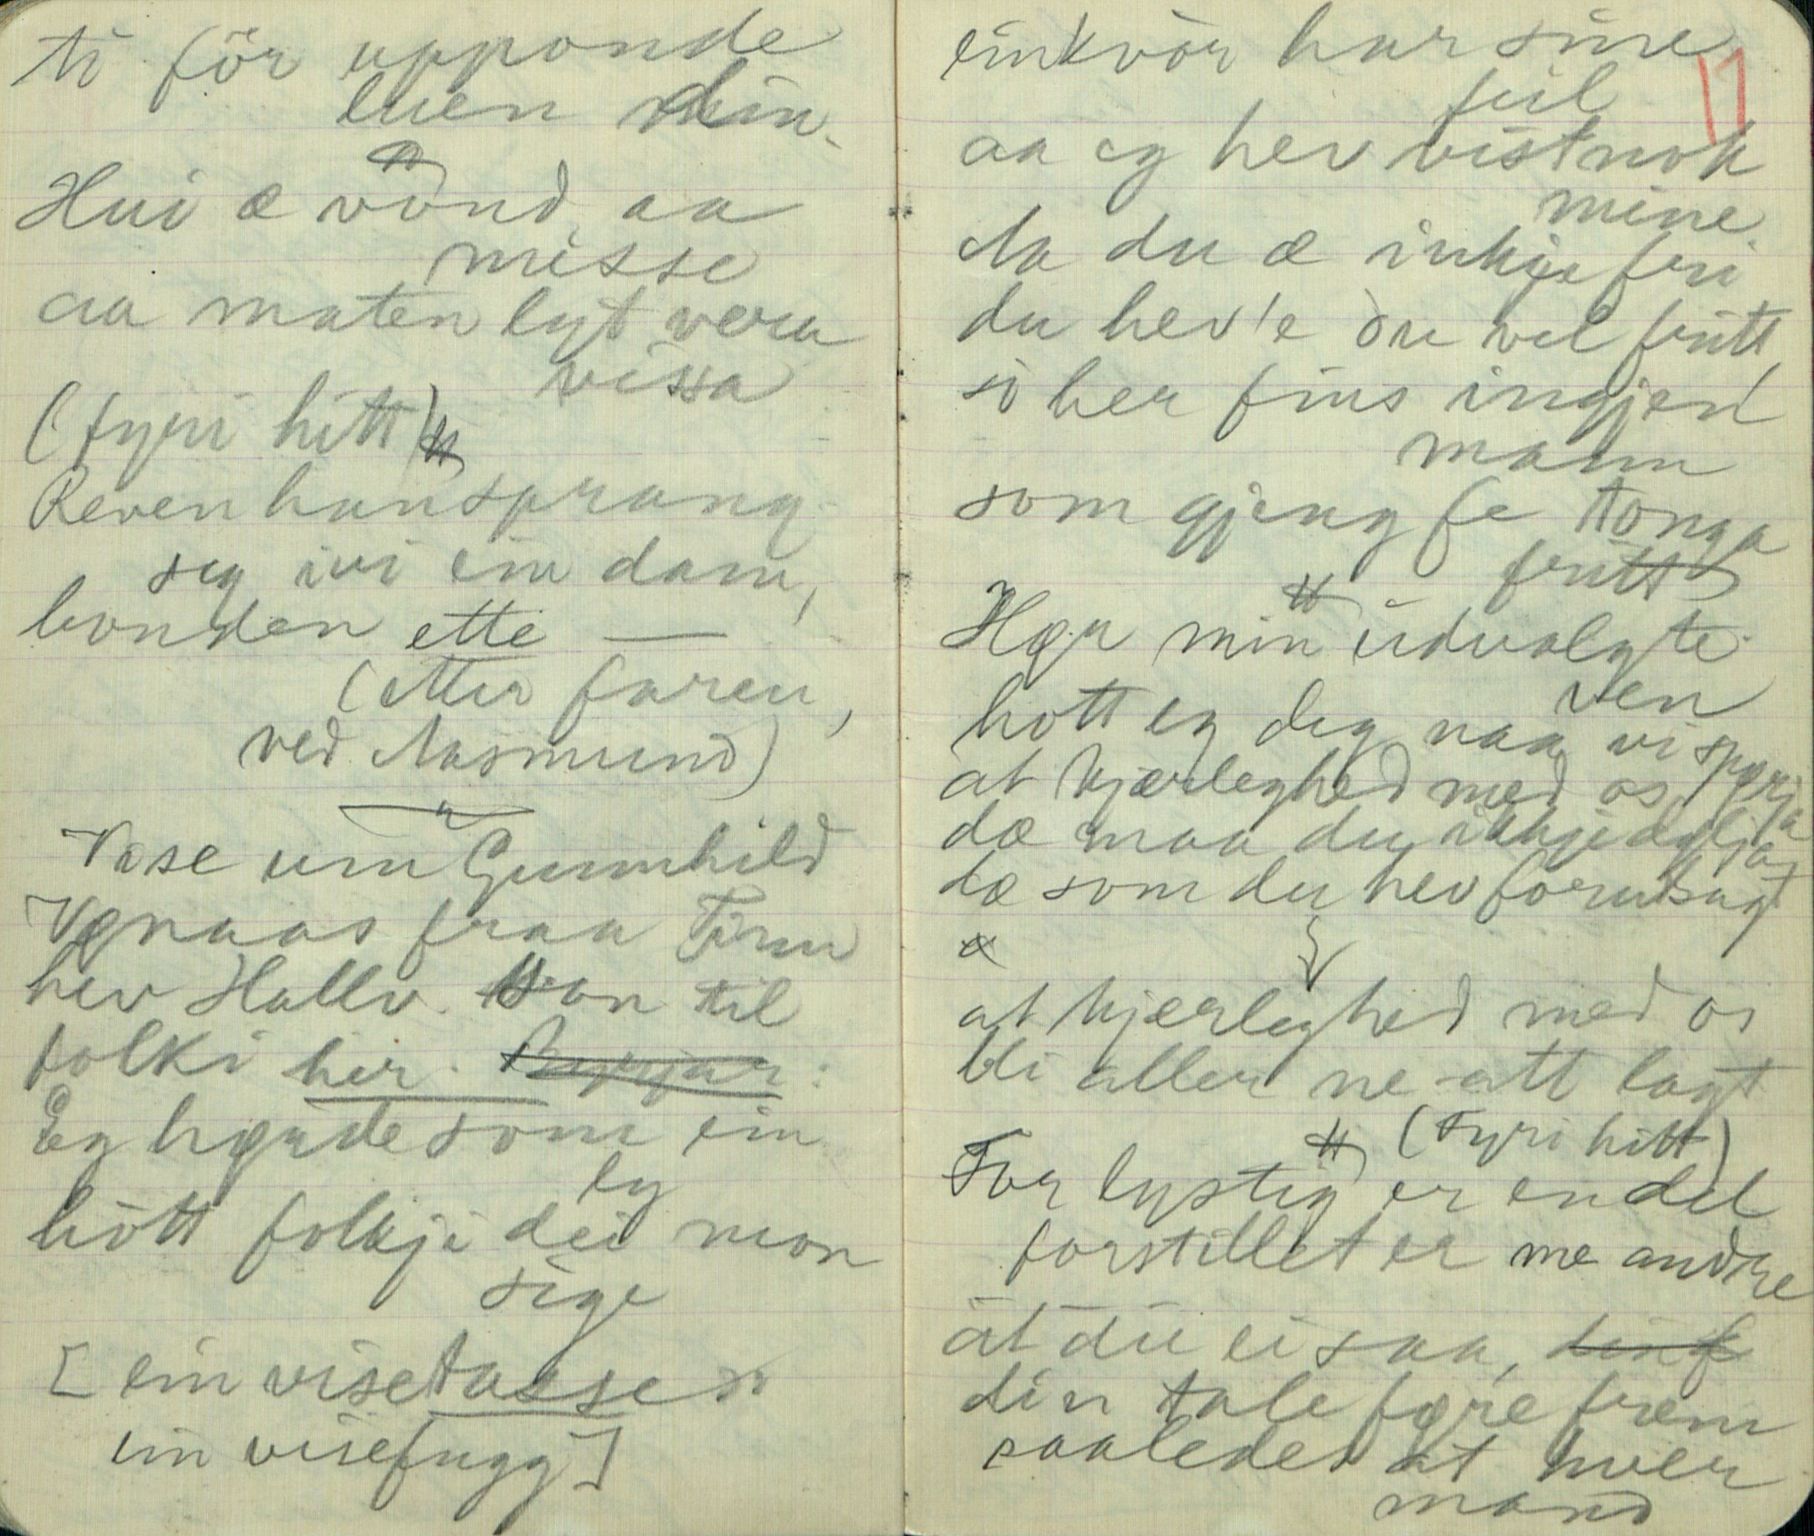 ti för upponde
luen din.
Hui æ vond aa
misse
aa maten lyt vera
vissa
(fyri hitt)
Reven han sprang
seg ivi ein dam,
bonden ette —
(etter faren,
ved Aasmund)
Vise um Gunnhild
Vønaas fraa Tinn
hev Hallv. til
folki her.
Eg høyrde som ein
ly
hött folkji dei mon
sige
[ein visetasse
ein visefugg]
einkvör har sine
feil
aa eg hev vistnok
mine
Aa du æ inkje fri
du hev'e du vel fritt
so her fins ingjen
mann
som gjeng fe tonga
fritt
Hør min udvalgte
ven
hott eg deg naa vi spørja
at kjærleghed med os
dæ maa du ikkje dølja
dæ som du hev forutsagt
at kjerleghed med os
bli aller ne-att lagt
(Fyri hitt)
For lystig er en del
forstillet er me andre
at du ei saa,
din tale føre frem
saaledes at hver
mand